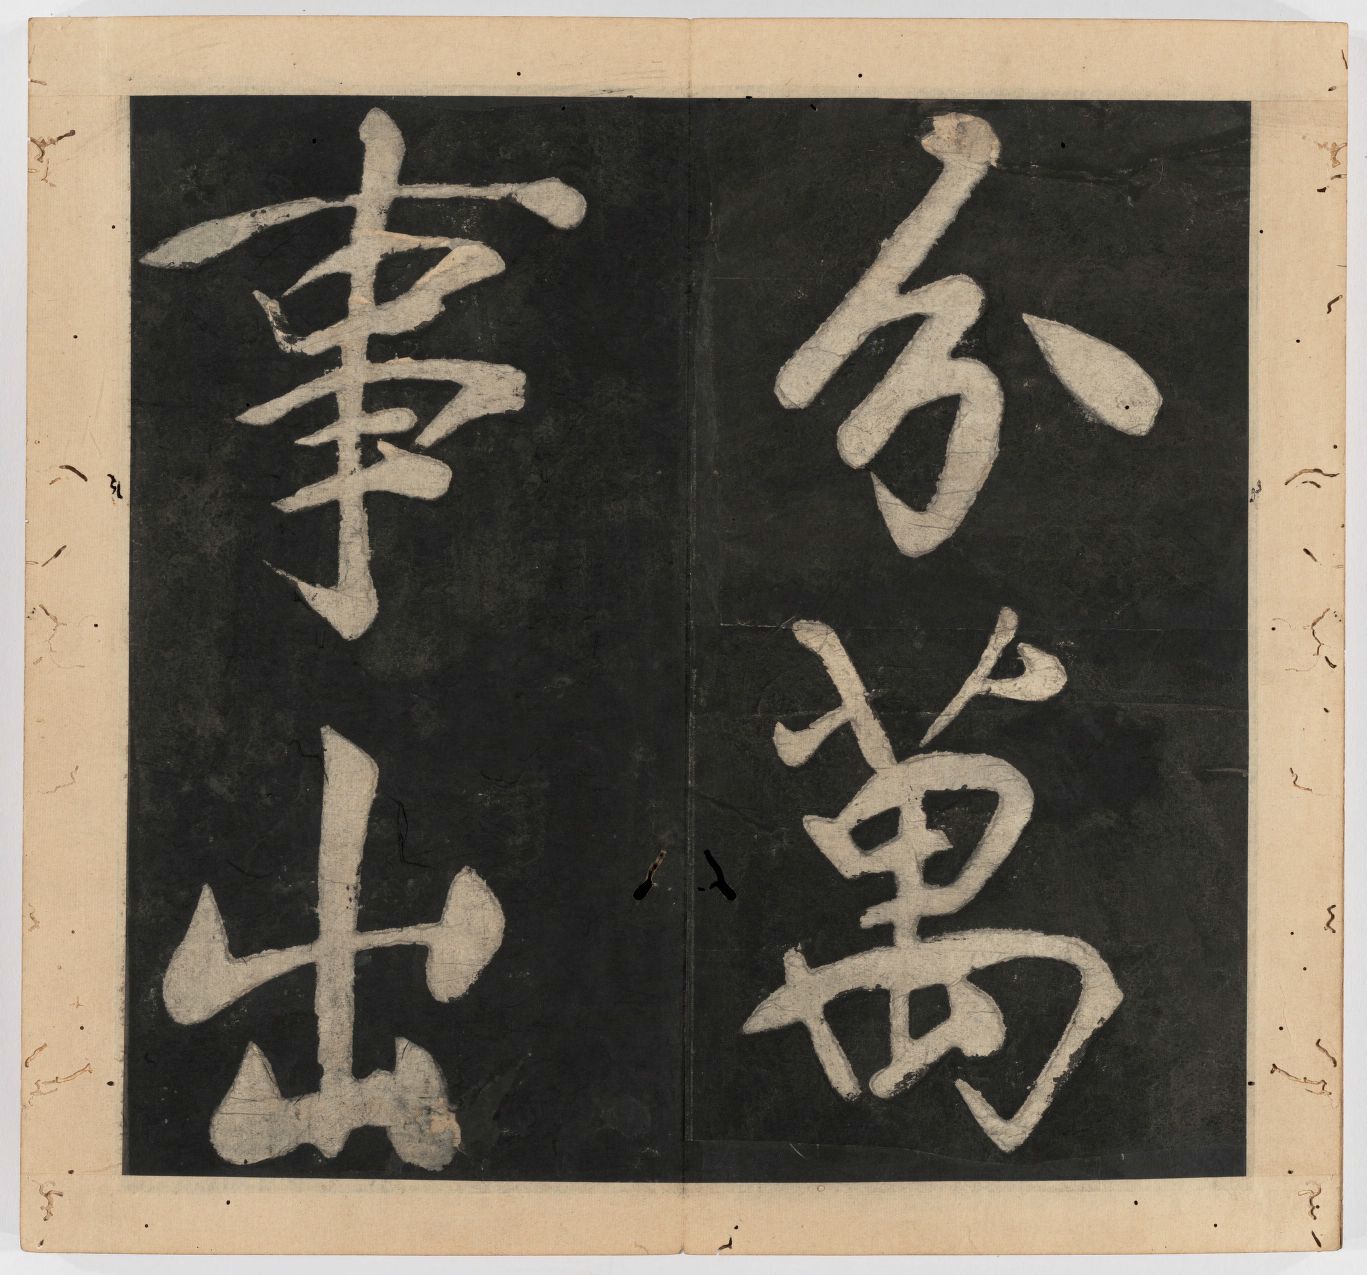 分萬
事出